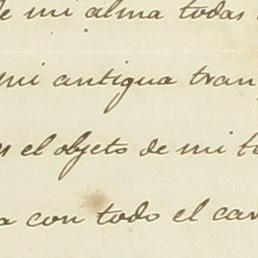 de mi alma todas
mi antigua tran
es el objeto de mi t
a con todo el car